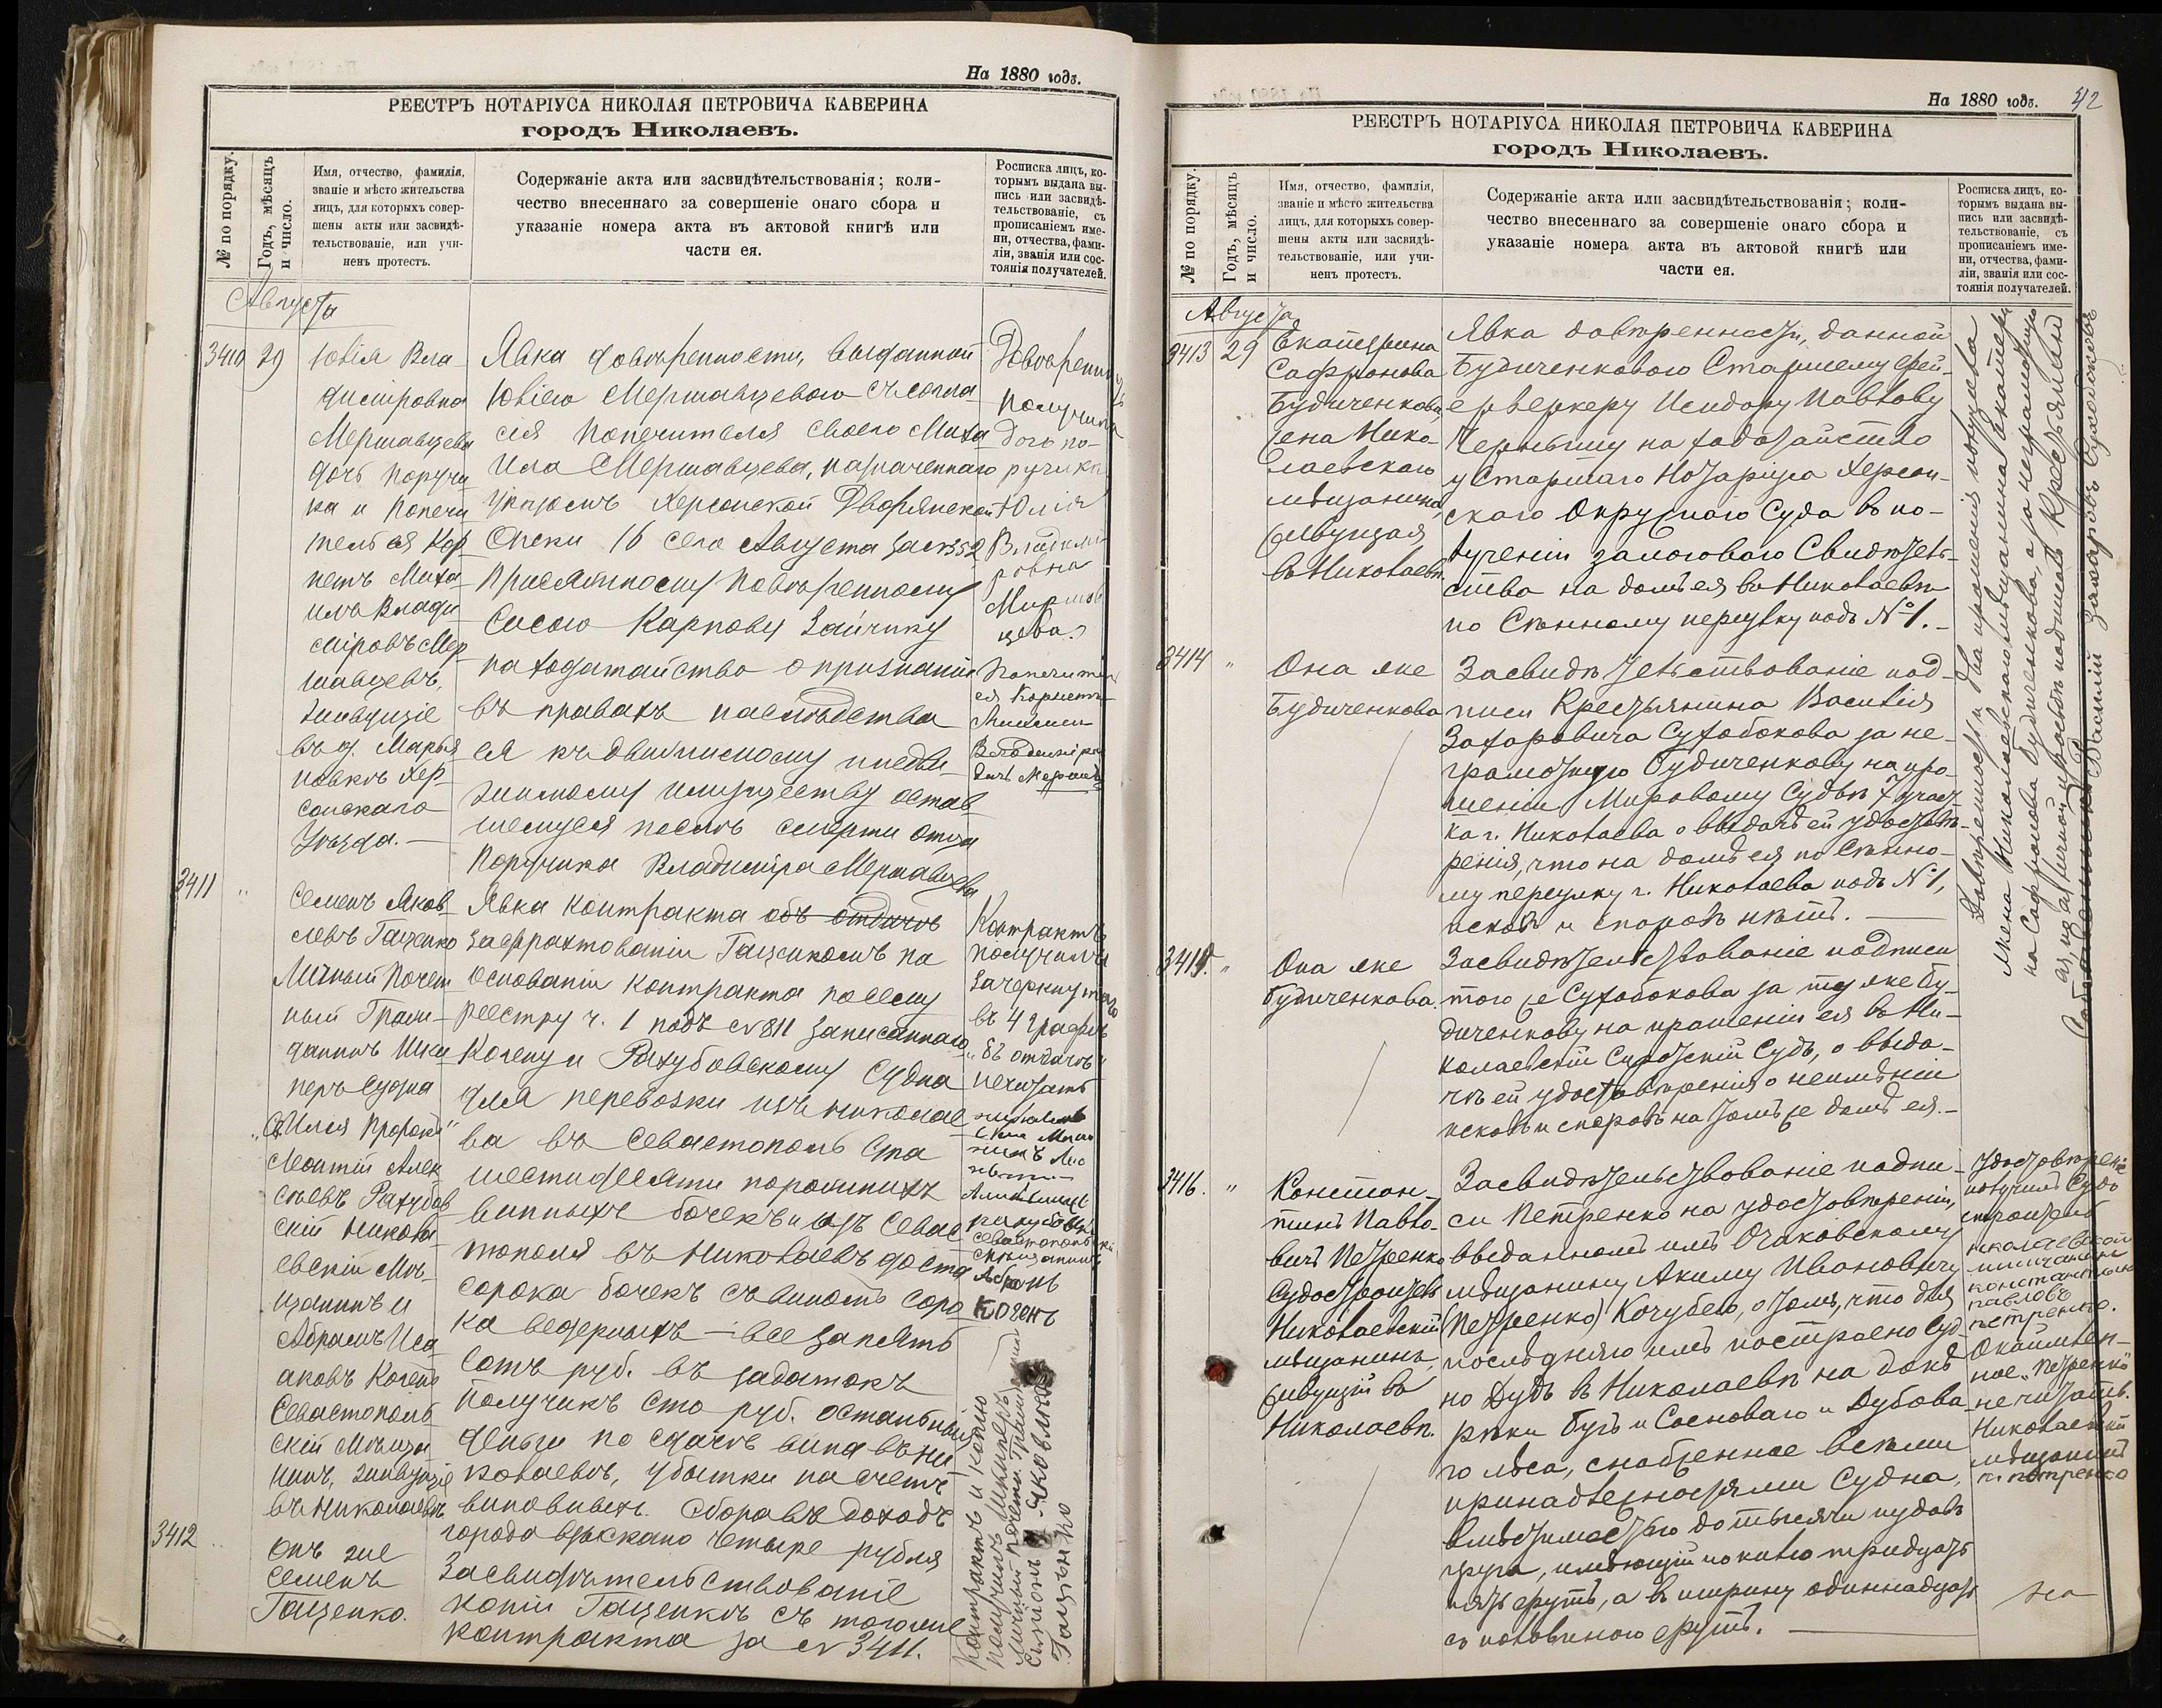 На 1880 годъ.
РЕЕСТРЪ НОТАРІУСА НИКОЛАЯ ПЕТРОВИЧА КАВЕРИНА
городъ Николаевъ.
№ по порядку.
Годъ, мѣсяцъ
и число.
Имя, отчество, фамилія,
званіе и мѣсто жительства
лицъ, для которыхъ совер-
шены акты или засвидѣ-
тельствованіе, или учи-
ненъ протестъ.
Содержаніе акта или засвидѣтельствованія; коли-
чество внесеннаго за совершеніе онаго сбора и
указаніе номера акта въ актовой книгѣ или
части ея.
Росписка лицъ, ко-
торымъ выдана вы-
пись или засвидѣ-
тельствованіе, съ
прописаніемъ име-
ни, отчества, фами-
ліи, званія или сос-
тоянія получателей.
Августа
3410 29
Юлія Вла-
диміровна
Мершавцева
дочь Поручи
ка и Попечи
тель ея Кор
нетъ Миха
илъ Влади
міровъ Мер
шавцевъ,
живущіе
въ д. Марья
новкѣ Хер-
сонскаго
Уѣзда.
Явка довѣренности, выданной
Юліею Мершавцевою съ согла-
сія попечителя своего Миха
ила Мершавцева, назначеннаго
указомъ Херсонской Дворянской
Опеки 16 сего Августа за №352
Присяжному повѣренному
Сысою Карпову Зайчику
на ходатайство о признаніи
въ правахъ наслѣдства
ея къ движимому и недви-
жимому имуществу остав
шемуся послѣ смерти отца
Поручика Владиміра Мершавцева
Довѣренность
получила
дочь по-
ручика
Юлія
Владими
ровна
Мершав
цева.
Попечитель
ея Корнетъ
Михаилъ
3411 "
Семенъ Яков
левъ Гащенко
Личный Почет
ный Граж-
данинъ Шки
перъ судна
"Св. Илья Пророкъ"
Леонтій Алек
сѣевъ Рахубов
скій Никола
евскій Мѣ-
щанинъ и
Абрамъ Иса
аковъ Когенъ
Севастополь
скій Мѣща
нинъ, живущіе
въ Николаевѣ
Явка контракта объ отдачѣ
зафрахтованіи Гащенкомъ на
основаніи контракта по сему
реестру ч. 1 подъ №811 записаннаго
Когену и Рахубовскому судна
для перевозки изъ Николае
ва въ Севастополь ста
шестидесяти порожнихъ
винныхъ бочекъ и изъ Севас
тополя въ Николаевъ до ста
сорока бочекъ съ виномъ соро
ка ведерныхъ — все за пять
сотъ руб. въ задатокъ
получилъ сто руб. остальныя
деньги по сдачѣ вина въ Ни
колаевѣ, убытки на счетъ
виновныхъ. Сбора въ доходъ
города взыскано четыре рубля
Контрактъ
получили
Зачеркнутое
въ 4 графѣ
"объ отдачѣ"
нечитать
Абрамъ
Когенъ
3412 "
Онъ же
Семенъ
Гащенко.
Засвидѣтельствованіе
копіи Гащенкѣ съ того же
контракта за №3411.
Контрактъ и копію
получилъ Шкиперъ
личный почетный гражданинъ
Симионъ Яковличъ
Гащенко
На 1880 годъ.
42
РЕЕСТРЪ НОТАРІУСА НИКОЛАЯ ПЕТРОВИЧА КАВЕРИНА
городъ Николаевъ.
№ по порядку.
Годъ, мѣсяцъ
и число.
Имя, отчество, фамилія,
званіе и мѣсто жительства
лицъ, для которыхъ совер-
шены акты или засвидѣ-
тельствованіе, или учи-
ненъ протестъ.
Содержаніе акта или засвидѣтельствованія; коли-
чество внесеннаго за совершеніе онаго сбора и
указаніе номера акта въ актовой книгѣ или
части ея.
Росписка лицъ, ко-
торымъ выдана вы-
пись или засвидѣ-
тельствованіе, съ
прописаніемъ име-
ни, отчества, фами-
ліи, званія или сос-
тоянія получателей.
Августа
3413 29
Екатерина
Сафронова
Будиченкова,
жена Нико-
лаевскаго
мѣщанина,
живущая
въ Николаевѣ.
Явка довѣренности, данной
Будиченковою Старшему фей-
ерверкеру Исидору Павлову
Чернышу на ходатайство
у Старшаго Нотаріуса Херсон-
скаго Окружнаго Суда въ по-
лученіи залоговаго Свидѣтель-
ства на домъ ея въ Николаевѣ
по Сѣнному переулку подъ №1.-
3414 "
Она же
Будиченкова
Засвидѣтельствованіе под-
писи Крестьянина Василія
Захаровича Сухобокова за не-
грамотную Будиченкову на про-
шеніи Мировому Судьѣ 7 участ
ка г. Николаева о выдачѣ ей удостовѣ-
ренія, что на домъ ея по Сѣнно-
му переулку г. Николаева подъ №1,
исковъ и споровъ нѣтъ.
3415. "
Она же
Будиченкова.
Засвидѣтельствованіе подписи
того же Сухобокова за ту же Бу-
диченкову на прошеніи ея въ Ни-
колаевскій Сиротскій Судъ, о выда-
чѣ ей удостовѣренія о неимѣніи
исковъ и споровъ на тотъ же домъ ея.-
Довѣренность и два прошенія получела
жена Николаевскаго мѣщанина Екатери
на Сафронова Будиченкова, а за неграмотную
Василій Захаровъ Сухобоковъ
3416. "
Констан-
тинъ Павло-
вичъ Петренко
Судостроитель
Николаевскій
мѣщанинъ,
живущій въ
Николаевѣ.
Засвидѣтельствованіе подпи-
си Петренко на удостовѣреніи,
выданномъ имъ Очаковскому
мѣщанину Акиму Ивановичу
(Петренко) Кочубею, о томъ, что для
послѣдняго имъ построено суд-
но Дубъ въ Николаевѣ на докѣ
рѣки Бугъ и Сосноваго и Дубова-
го лѣса, снабженное всѣми
принадлежностями судна,
вмѣстимостью до тысячи пудовъ
груза, имѣющій по килю тридцать
пять футъ, а въ ширину одиннадцать
съ половиною футъ.
Удостовѣреніе
получилъ Судо
строитель
николаевской
мищанинъ
константинъ
павловъ
петренко.
Окаймлен-
ное "Петренко"
не читать.
Николаевскій
мѣщанинъ
к. петренко